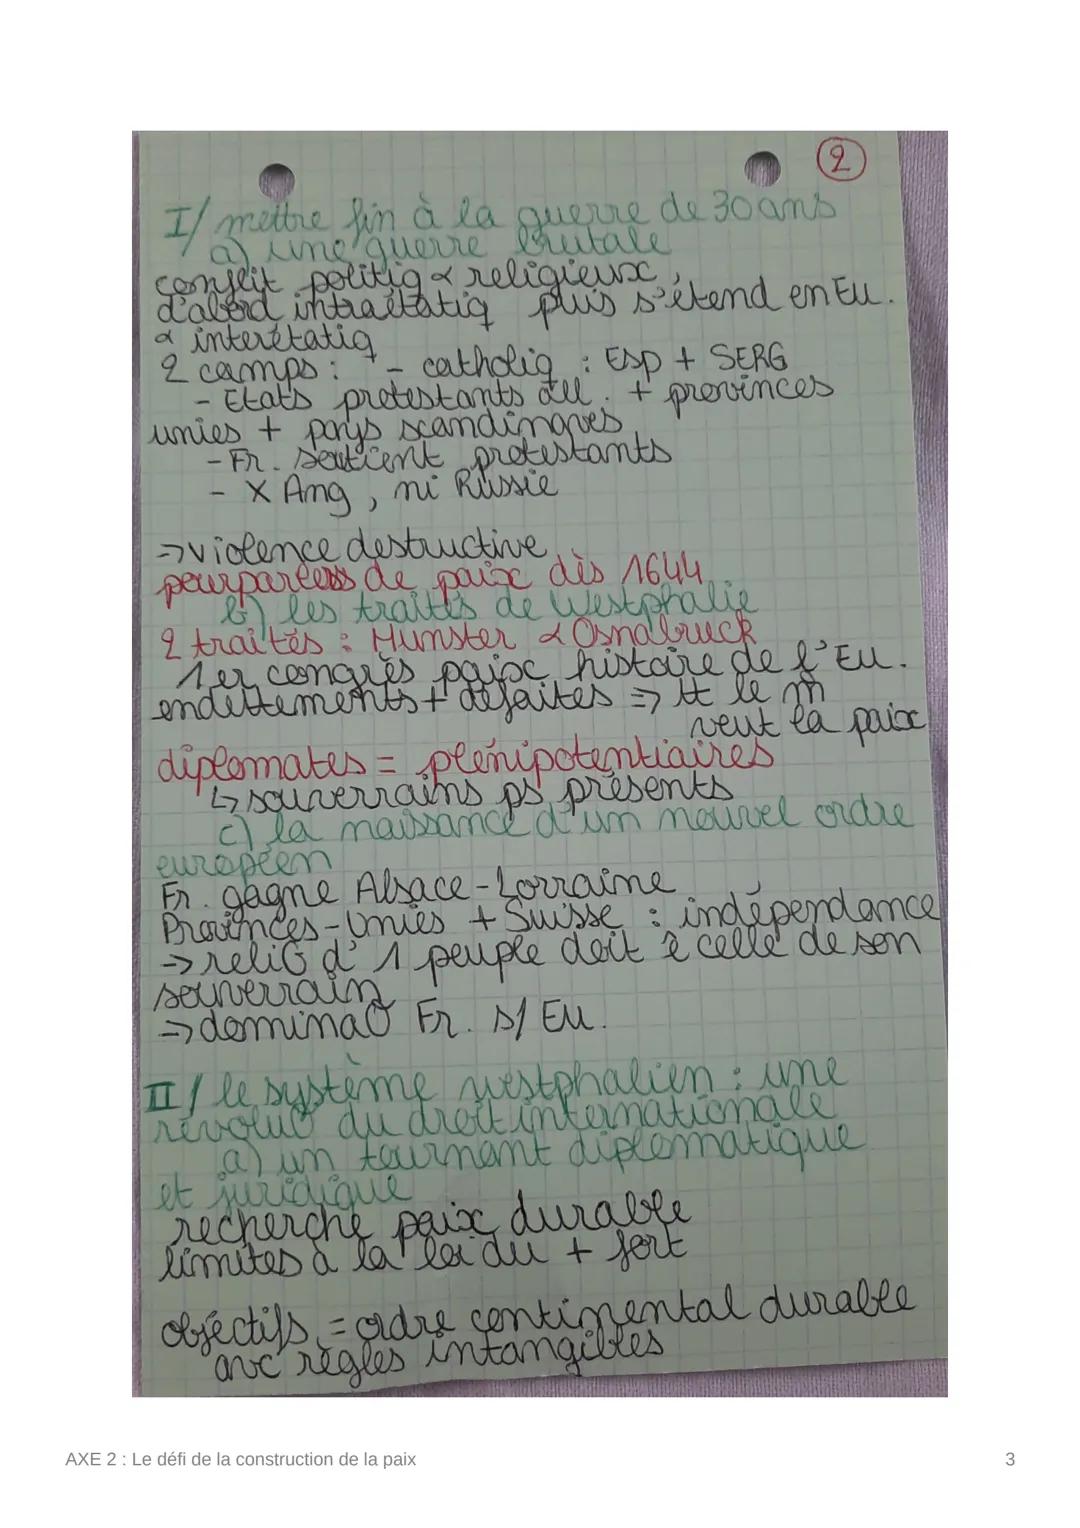 2
I/ mettre fin à la guerre de 30 ans
a) une guerre brutale
conflit politiq & religieux,
d'abord intraétatiq puis s'étend en Eu.
& interétatiq
2 camps : - catholiq : Esp + SERG
- Etats protestants all. + provinces
unies + pays scandinaves
- Fr. soutient protestants
- X Ang, ni Russie
→ violence destructive
pourparlers de paix dès 1644
b) les traités de Westphalie
2 traités : Munster & Osnabruck
1er congrès paix histoire de l'Eu.
endettements + défaites => tt le m
veut la paix
diplomates = plénipotentiaires
↳ souverrains ps présents
c) la naissance d'un nouvel ordre
européen
Fr. gagne Alsace-Lorraine
Provinces-Unies + Suisse : indépendance
→ reliG d' 1 peuple doit ê celle de son
souverrain
=> dominaO Fr. s/ Eu.
II/ le système westphalien : une
révoluO du droit internationale
a) un tournant diplomatique
et juridique
recherche paix durable
limites à la loi du + fort
objectifs = ordre continental durable
avc règles intangibles
AXE 2 : Le défi de la construction de la paix
3